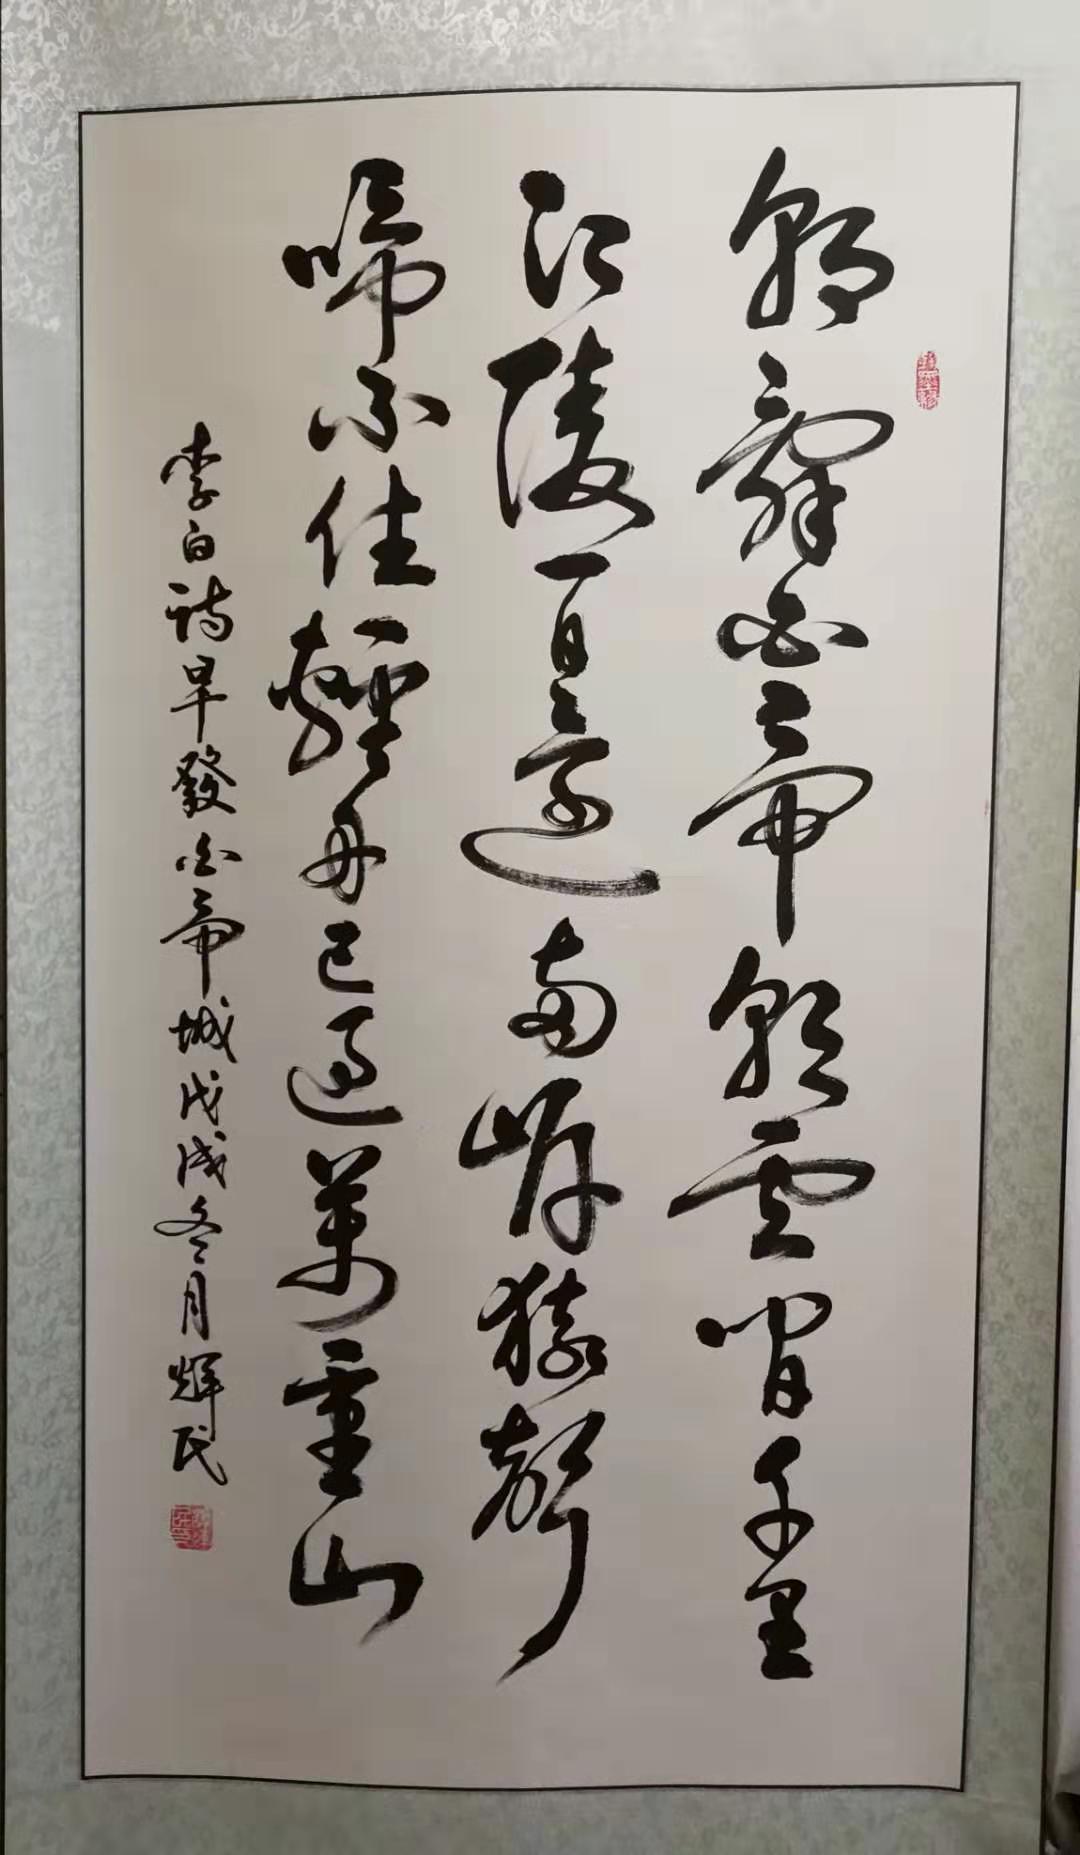 朝辭白帝彩雲間千里
江陵一日還兩岸猿聲
啼不住輕舟已過萬重山
李白詩早發白帝城戊戌冬月輝民